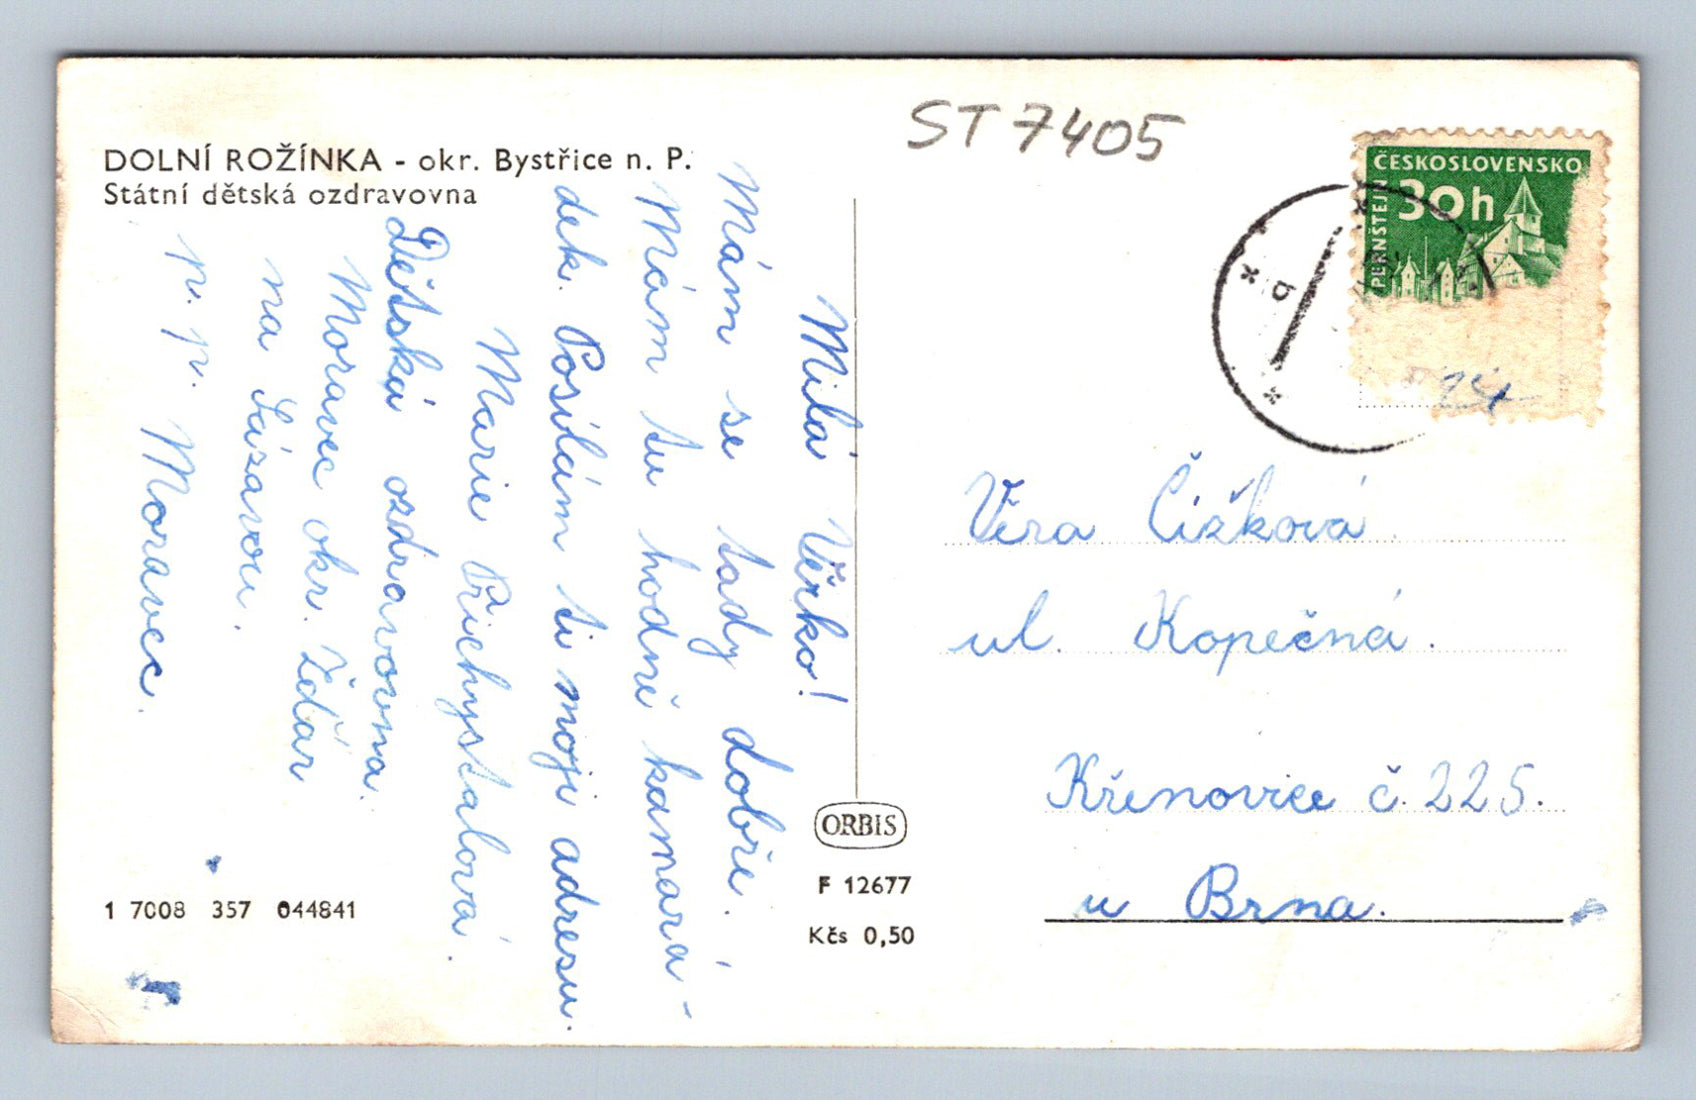 DOLNÍ ROŽÍNKA - okr. Bystřice n. P.
Státní dětská ozdravovna
Milá Věrko!
Mám se tady dobře.
Mám tu hodně kamará-
dek. Posílám ti moji adresu.
Marie Přichystalová.
Dětská ozdravovna.
Moravec okr. Žďár
na Sázavou.
p. p. Moravec.
1 7008 357 044841
ORBIS
F 12677
Kčs 0,50
ST 7405
ČESKOSLOVENSKO
30h
PERNŠTEJN
b
Věra Čížková
ul. Kopečná.
Křenovice č. 225.
u Brna.